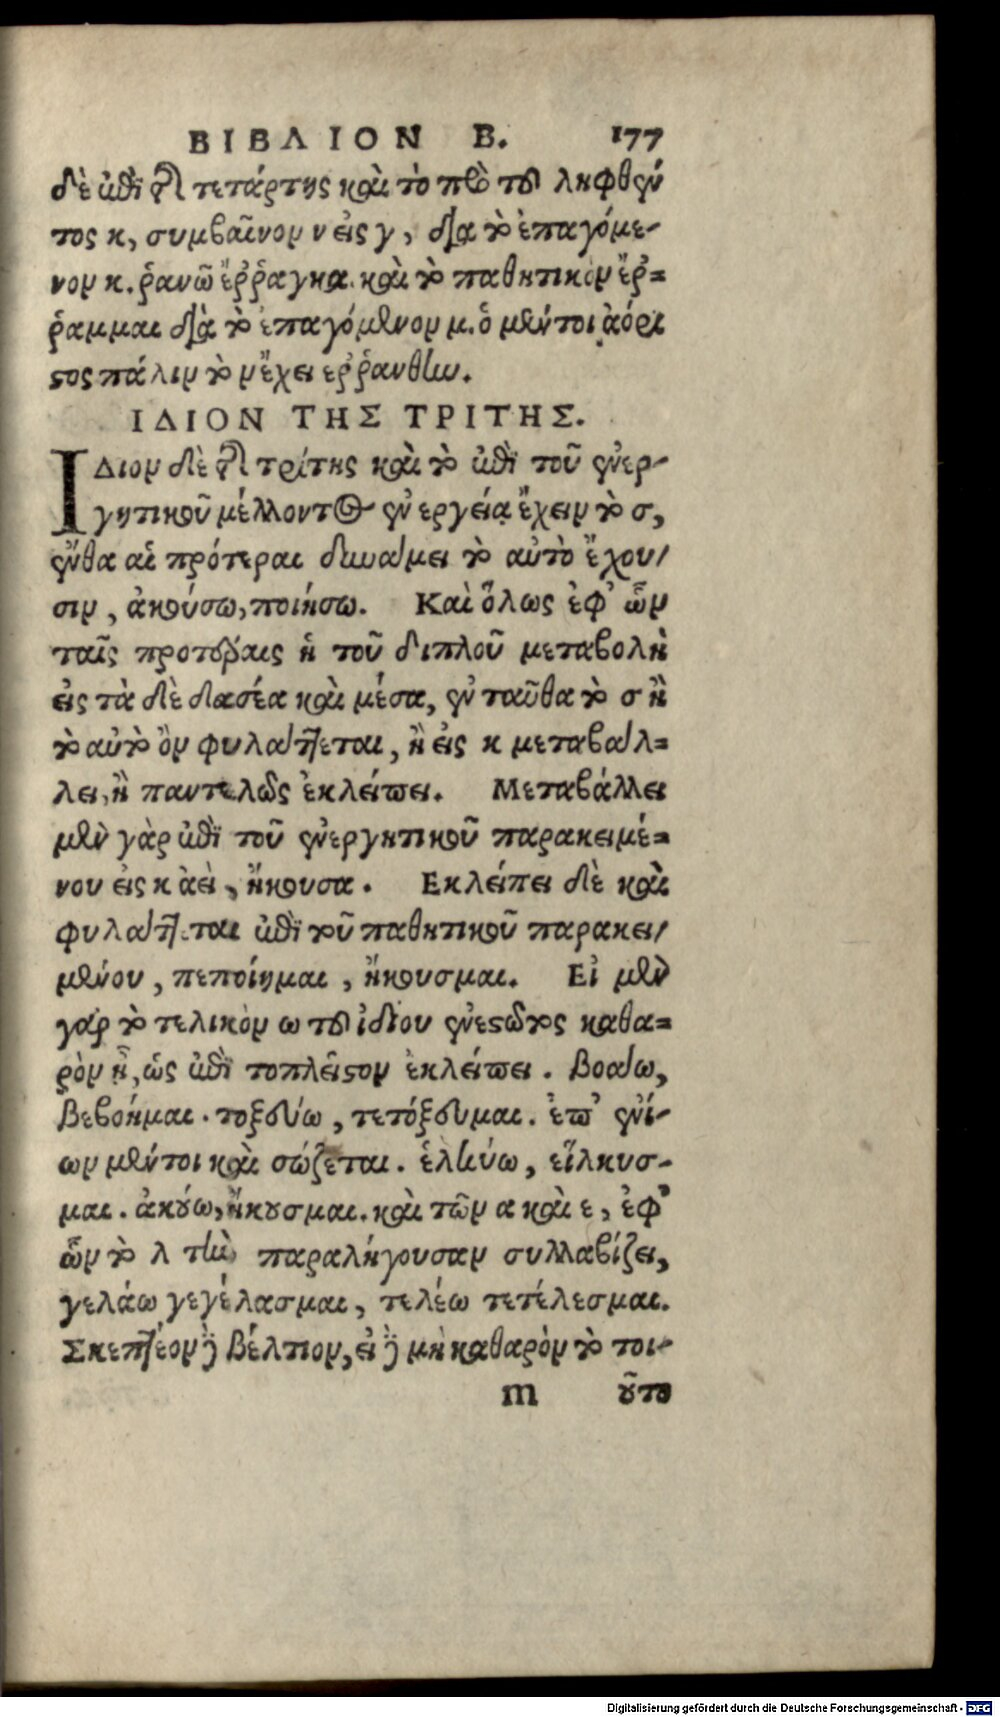 ΒΙΒΛΙΟΝ Β. 177
δὲ ἐπὶ τῆς τετάρτης καὶ τὸ πρὸ τοῦ ληφθέν
τος κ, συμβαῖνον ν εἰς γ, διὰ τὸ ἐπαγόμε-
νον κ. ῥανῶ ἔῤῥαγκα. καὶ τὸ παθητικὸν ἔῤ=
ῥαμμαι διὰ τὸ ἐπαγόμενον μ. ὁ μέντοι ἀόρι
ϛος πάλιν τὸ ν ἔχει ἐῤῥάνθην.
ΙΔΙΟΝ ΤΗΣ ΤΡΙΤΗΣ.
ΙΔιον δὲ τῆς τρίτης καὶ τὸ ἐπὶ τοῦ ἐνερ-
γητικοῦ μέλλοντος ἐνεργείᾳ ἔχειν τὸ σ,
ἔνθα αἱ πρότεραι δυνάμει τὸ αὐτὸ ἔχου/
σιν, ἀκούσω, ποιήσω. Καὶ ὅλως ἐφ' ὧν
ταῖς προτέραις ἡ τοῦ διπλοῦ μεταβολὴ
εἰς τὰ δὲ δασέα καὶ μέσα, ἐνταῦθα τὸ σ ἢ
τὸ αὐτὸ ὂν φυλάττεται, ἢ εἰς κ μεταβάλ=
λει, ἢ παντελῶς ἐκλείπει. Μεταβάλλει
μὲν γὰρ ἐπὶ τοῦ ἐνεργητικοῦ παρακειμέ=
νου εἰς κ ἀεὶ, ἤκουσα. Εκλείπει δὲ καὶ
φυλάττεται ἐπὶ τοῦ παθητικοῦ παρακει/
μένου, πεποίημαι, ἤκουσμαι. Εἰ μὲν
γὰρ τὸ τελικὸν ω τοῦ ἰδίου ἐνεϛῶτος καθα=
ρὸν ᾖ, ὡς ἐπὶ τοπλεῖϛον ἐκλείπει. βοάω,
βεβόημαι. τοξεύω, τετόξευμαι. ἐπ' ἐνί-
ων μέντοι καὶ σώζεται. ἑλκύω, εἵλκυσ-
μαι. ἀκούω, ἤκουσμαι. καὶ τῶν α καὶ ε, ἐφ'
ὧν τὸ λ τὴν παραλήγουσαν συλλαβίζει,
γελάω γεγέλασμαι, τελέω τετέλεσμαι.
Σκεπτέον δὲ βέλτιον, εἰ δὲ μὴ καθαρὸν τὸ τοι-
m οῦτο
Digitalisierung gefördert durch die Deutsche Forschungsgemeinschaft - DFG